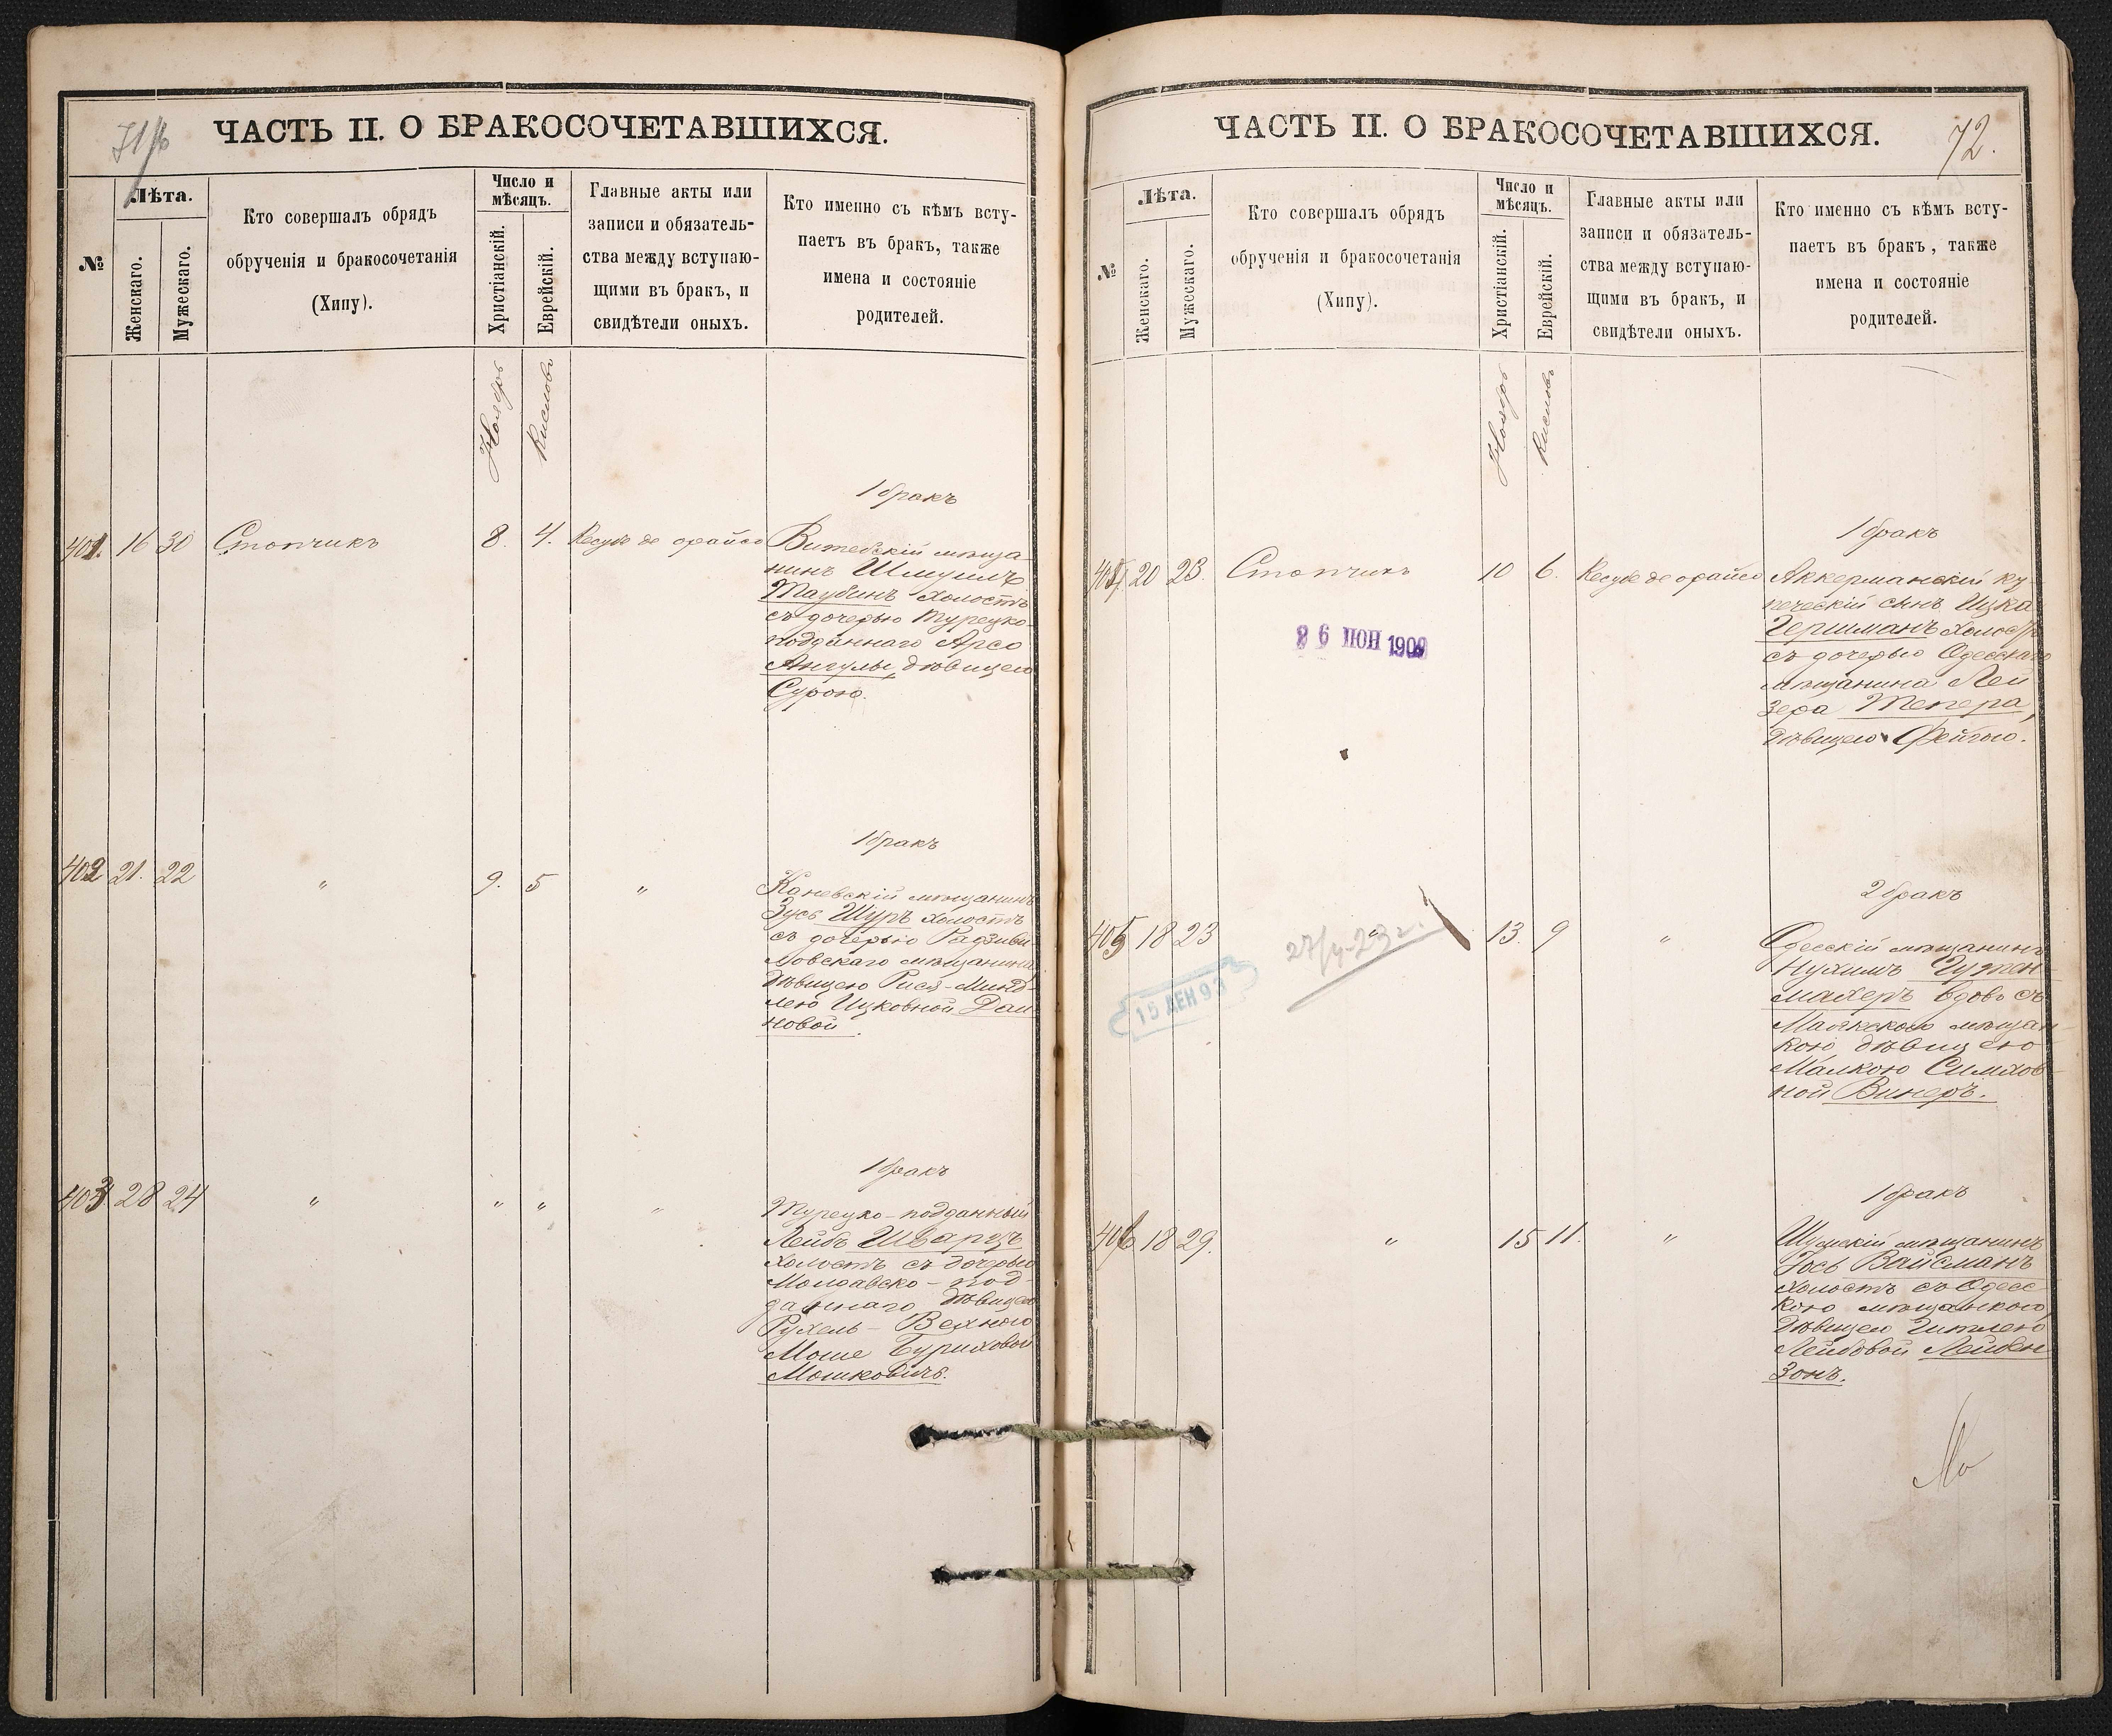 71 об
ЧАСТЬ II. О БРАКОСОЧЕТАВШИХСЯ.
№
Лѣта.
Женскаго.
Мужескаго.
Кто совершалъ обрядъ
обрученія и бракосочетанія
(Хипу).
Число и
мѣсяцъ.
Христіанскій.
Еврейскій.
Главные акты или
записи и обязатель-
ства между вступаю-
щими въ бракъ, и
свидѣтели оныхъ.
Кто именно съ кѣмъ всту-
паетъ въ бракъ, также
имена и состояніе
родителей.
Ноябрь
Кислевъ
1 бракъ
401. 16 30 Стопчикъ 8. 4. Кесубе де орайсо Витебскій мѣща-
нинъ Шмуилъ
Таубинъ холостъ
съ дочерью Турецко-
подданнаго Арсо
Ангулы, дѣвицею
Сурою.
1 бракъ
402 21. 22 " 9. 5 " Каневскій мѣщанинъ
Зусь Шуръ холостъ
съ дочерью Радзиви-
ловскаго мѣщанина
дѣвицею Рися-Минд-
лею Ицковной Даи-
новой.
1 бракъ
403 28 24 " " " " Турецко-подданный
Лейбъ Шварцъ
холостъ съ дочерью
Молдавско-под-
даннаго дѣвицею
Рухель-Вехною
Моше Буриховой
Мошковичъ.
72.
ЧАСТЬ II. О БРАКОСОЧЕТАВШИХСЯ.
№
Лѣта.
Женскаго.
Мужескаго.
Кто совершалъ обрядъ
обрученія и бракосочетанія
(Хипу).
Число и
мѣсяцъ.
Христіанскій.
Еврейскій.
Главные акты или
записи и обязатель-
ства между вступаю-
щими въ бракъ, и
свидѣтели оныхъ.
Кто именно съ кѣмъ всту-
паетъ въ бракъ, также
имена и состояніе
родителей.
Ноябрь
Кислевъ
1 бракъ
404 20 23. Стопчикъ 10 6. Кесубе де орайсо Аккерманскій ку-
печескій сынъ Ицка
Гершманъ холостъ
съ дочерью Одесскаго
мѣщанина Лей
зера Тепера,
дѣвицею Фейгою.
26 ІЮН 1902
2 бракъ
405 18 23 13. 9 " Одесскій мѣщанинъ
Нухимъ Гутен-
махеръ вдовъ съ
мѣщан-
кою дѣвицею
Малкою Симхов-
ной Винеръ.
15 ДЕК 93
1 бракъ
406 18 29. " 15 11. " Шумскій мѣщанинъ
Іось Вайсманъ
холостъ съ Одесс-
кою мѣщанкою,
дѣвицею Гитлею
Лейбовой Лейбен-
зонъ.